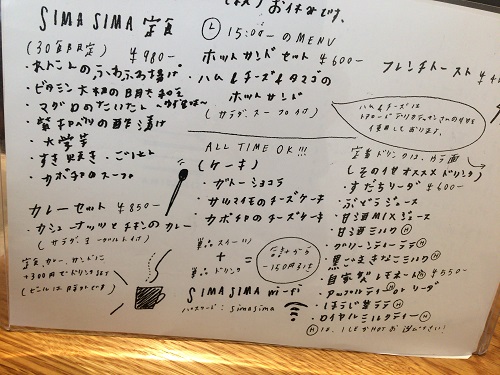 お休みです。
SIMASIMA 定食
(30食限定) ¥980-
・れんこんのふわふわ揚げ
・ビタミン大根の
・マグロのたいたん
・紫キャベツの酢漬け
・大学芋
・すき焼き・ごはん
・カボチャのスープ
カレーセット ¥850-
・カシューナッツとチキンのカレー
(サラダ、ヨーグルト付)
定食、カレー、サンドに
+300円でドリンク付
L 15:00-のMENU
ホットサンドセット ¥600-
・ハム&チーズ&タマゴの
ホットサンド
(サラダ、スープ付)
フレンチトースト
ハム&チーズは
使用しております。
ALL TIME OK!!!
(ケーキ)
・ガトーショコラ
・サツマイモのチーズケーキ
・カボチャのチーズケーキ
単品スイーツ
+
単品ドリンク
-150円引き
SIMASIMA wi-fi
パスワード:simasima
定番ドリンクは、ウラ面
(その他オススメドリンク)
・すだちソーダ ¥600-
・ぶどうジュース
・甘酒MIXジュース
・甘酒ミルク H
・グリーンティーラテ H
・黒ごまきなこミルク H
・自家製レモネード H ¥550-
・アップルティーソーダ
・ほうじ茶ラテ H
・ロイヤルミルクティー H